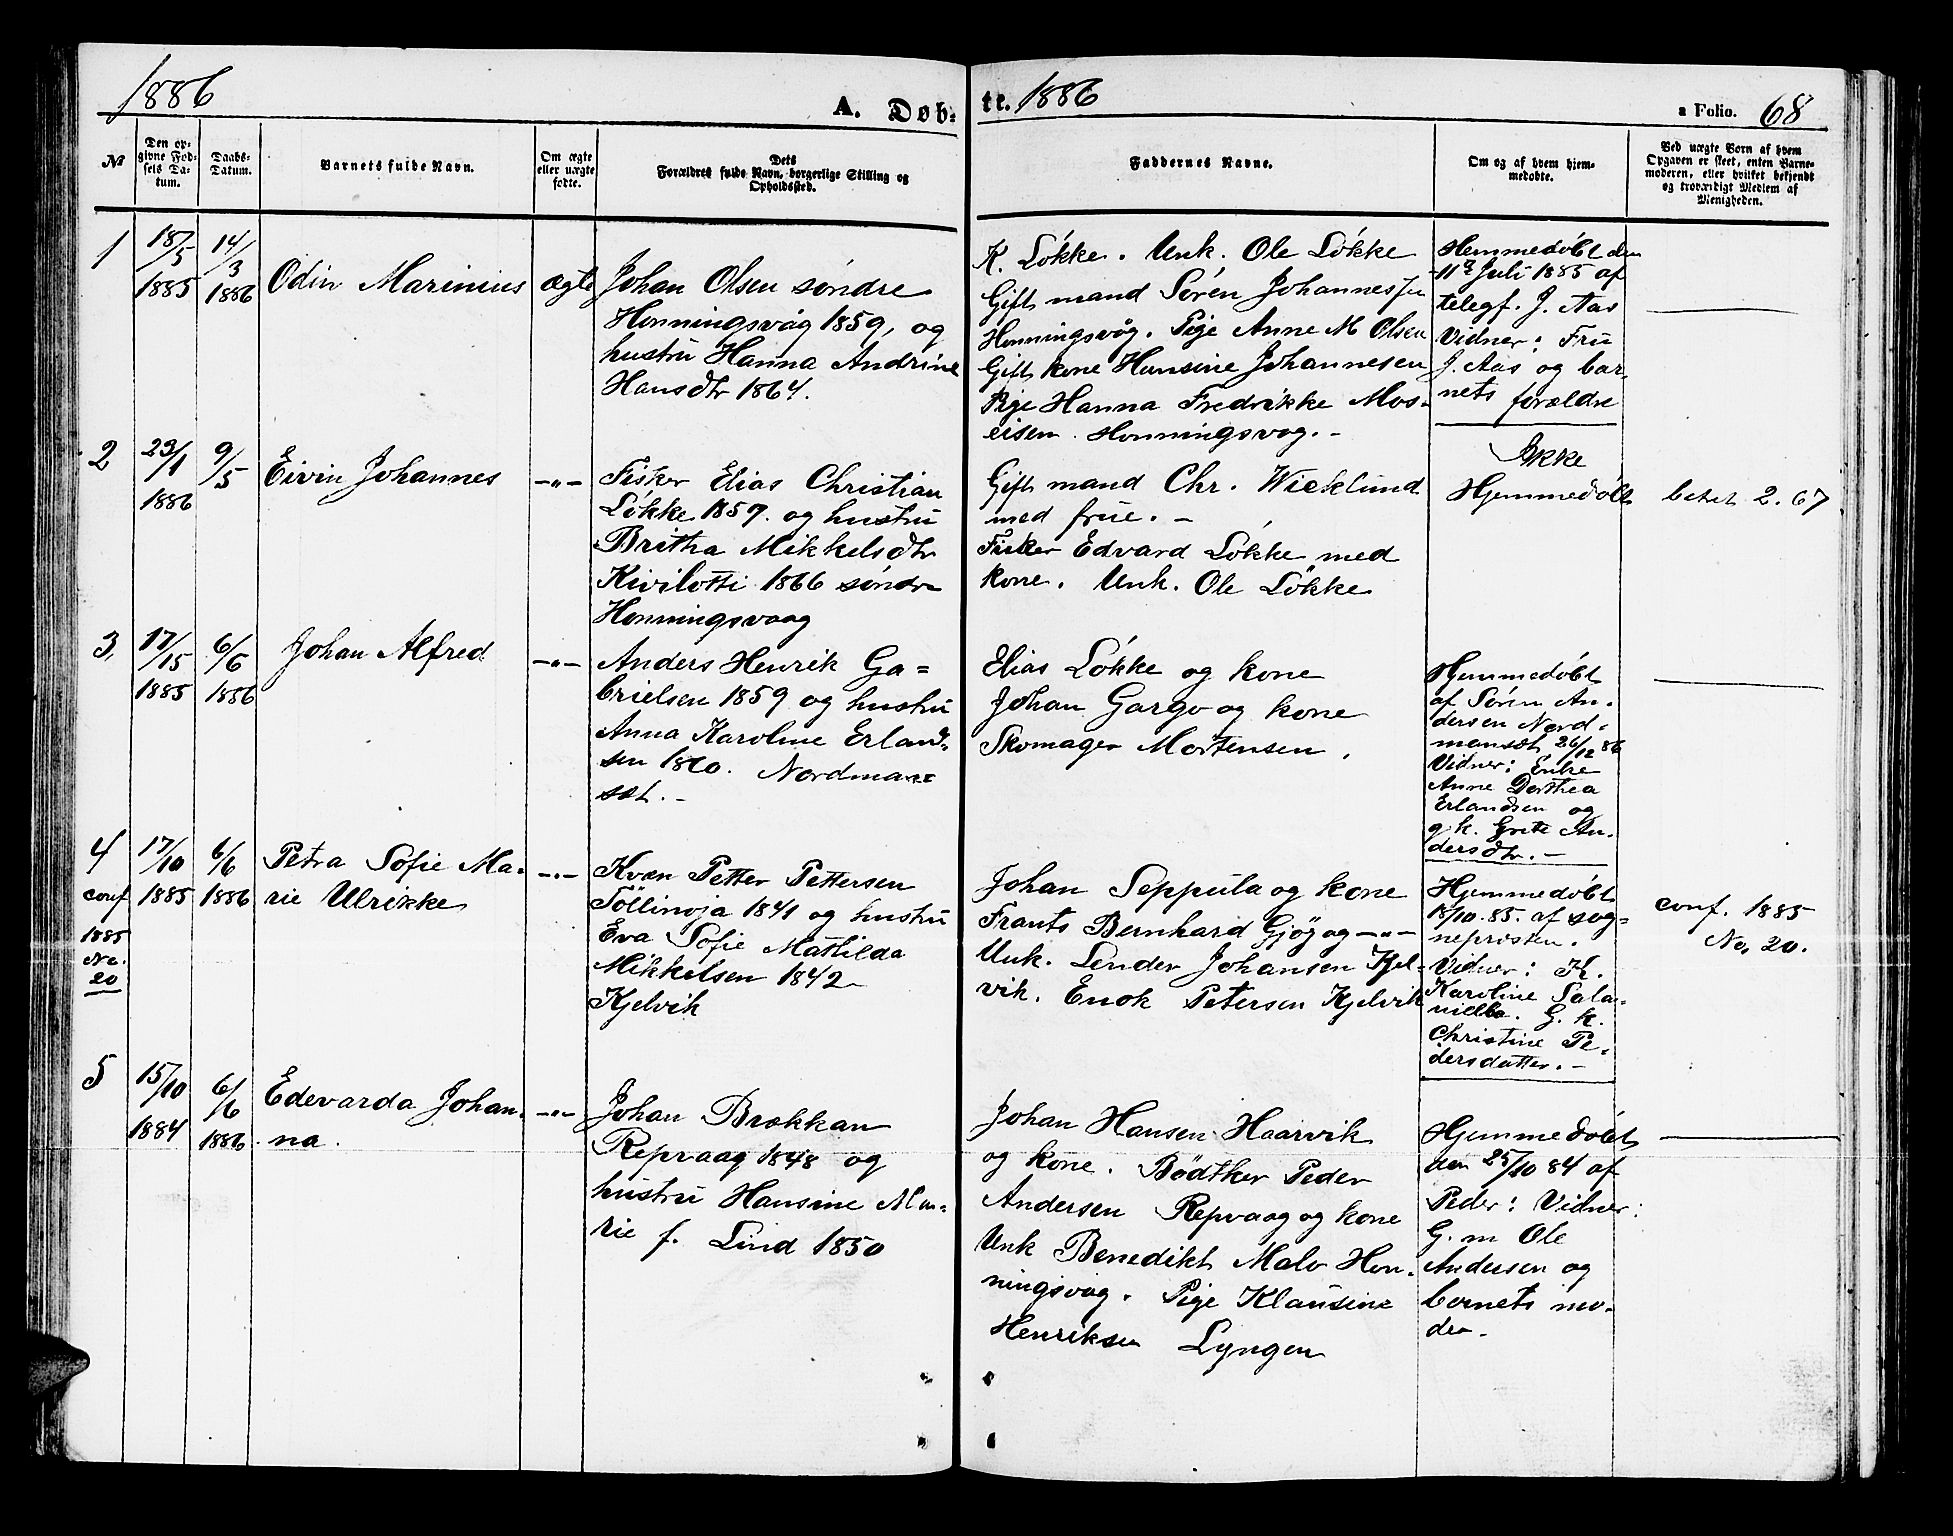 1886
A. Døb-
te. 1886
a Folio. 68
No
Den op-
givne Fød-
sels Da-
tum.
Daabs-
Datum.
Barnets fulde Navn.
Om ægte
eller uægte
fødte.
Dets
Forældres fulde Navn, borgerlige Stilling og
Opholdssted.
Faddernes Navne.
Om og af hvem hjem-
medøbt.
Ved uægte Børn af hvem
Opgaven er skeet, enten Barne-
moderen, eller hvilket bekjendt
og troværdigt Medlem af
Menigheden.
1
18/5
1885
14/3
1886
Odin Marinius
ægte
Johan Olsen søndre
Honningsvåg 1859, og
hustru Hanna Andrine
Hansdtr 1864.
K. Løkke. Unk. Ole Løkke
Gift mand Søren Johannesen
Honningsvåg. Pige Anne M Olsen
Gift kone Hansine Johannesen
Pige Hanna Fredrikke Mos-
eisen. Honningsvog. -
Hemmedøbt den
11te Juli 1885 af
telegf. J. Aas
Vidner: Fru
J. Aas og bar-
nets forældre
2
23/1
1886
9/5
Eivin Johannes
-"-
Fisker Elias Christian
Løkke 1859. og hustru
Britha Mikkelsdtr
Kivilotti 1866 søndr
Honningsvaag
Gift mand Chr. Wicklund
med frue. -
Fisker Edvard Løkke med
kone. Unk. Ole Løkke
Ikke
Hjemmedøbt
betet 2. 67
3.
17/15
1885
6/6
1886
Johan Alfred
-"-
Anders Henrik Ga-
brielsen 1859 og hustru
Anna Karoline Erland-
sen 1860. Nordman-
sæt. -
Elias Løkke og kone
Johan Gargo og kone
Skomager Mortensen.
Hjemmedøbt
af Søren An-
dersen Nord-
mansæt 26/12 86
Vidner: Enke
Anne Dorthea
Erlandsen og
g k. Grete An-
dersdtr. -
4
conf
1885
No.
20
17/10
1885
6/6
1886
Petra Sofie Ma-
rie Ulrikke
-"-
Kvæn Petter Pettersen
Töllinoja 1841 og hustru
Eva Sofie Mathilda
Mikkelsen 1842
Kjelvik
Johan Seppula og kone
Frants Bernhard Gjøg og -"-
Unk. Sender Johansen Kjel-
vik. Enok Petersen Kjelvik
Hjemmedøbt
18/10. 85. af sog-
nepresten.
Vidner: K.
Karoline Sala-
niella. G. k.
Christine Pe-
dersdatter. -
conf. 1885
No. 20.
5
15/10
1884
6/6
1886
Edevarda Johan-
na.
-"-
Johan Brækkan
Repvaag 1848 og
hustru Hansine Ma-
rie f. Lind 1850
Johan Hansen Haarvik
og kone. Bødtker Peder
Andersen Repvaag og kone
Unk Benedikt Malo Hon-
ningsvåg. Pige Klausine
Henriksen Lyngen
Hjemmedøbt
den 25/10 84 af
Peder: Vidner:
G. m Ole
Andersen og
barnets mo-
der.